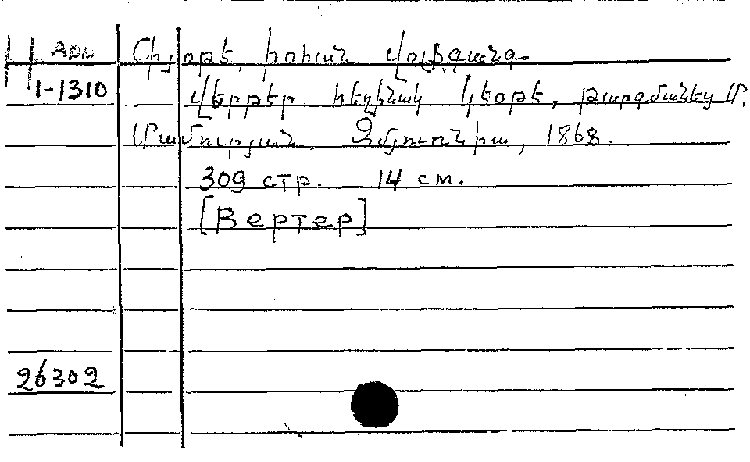 АДЛ
1-1310
Գյոթե, Իոհան Վոլֆգանգ
Վերթեր հեղինակ Կեօթէ, թարգմանեց Մ.
Մամուրյան. Զմյուռնիա, 1868.
309 стр. 14 см.
[Вертер]
26302